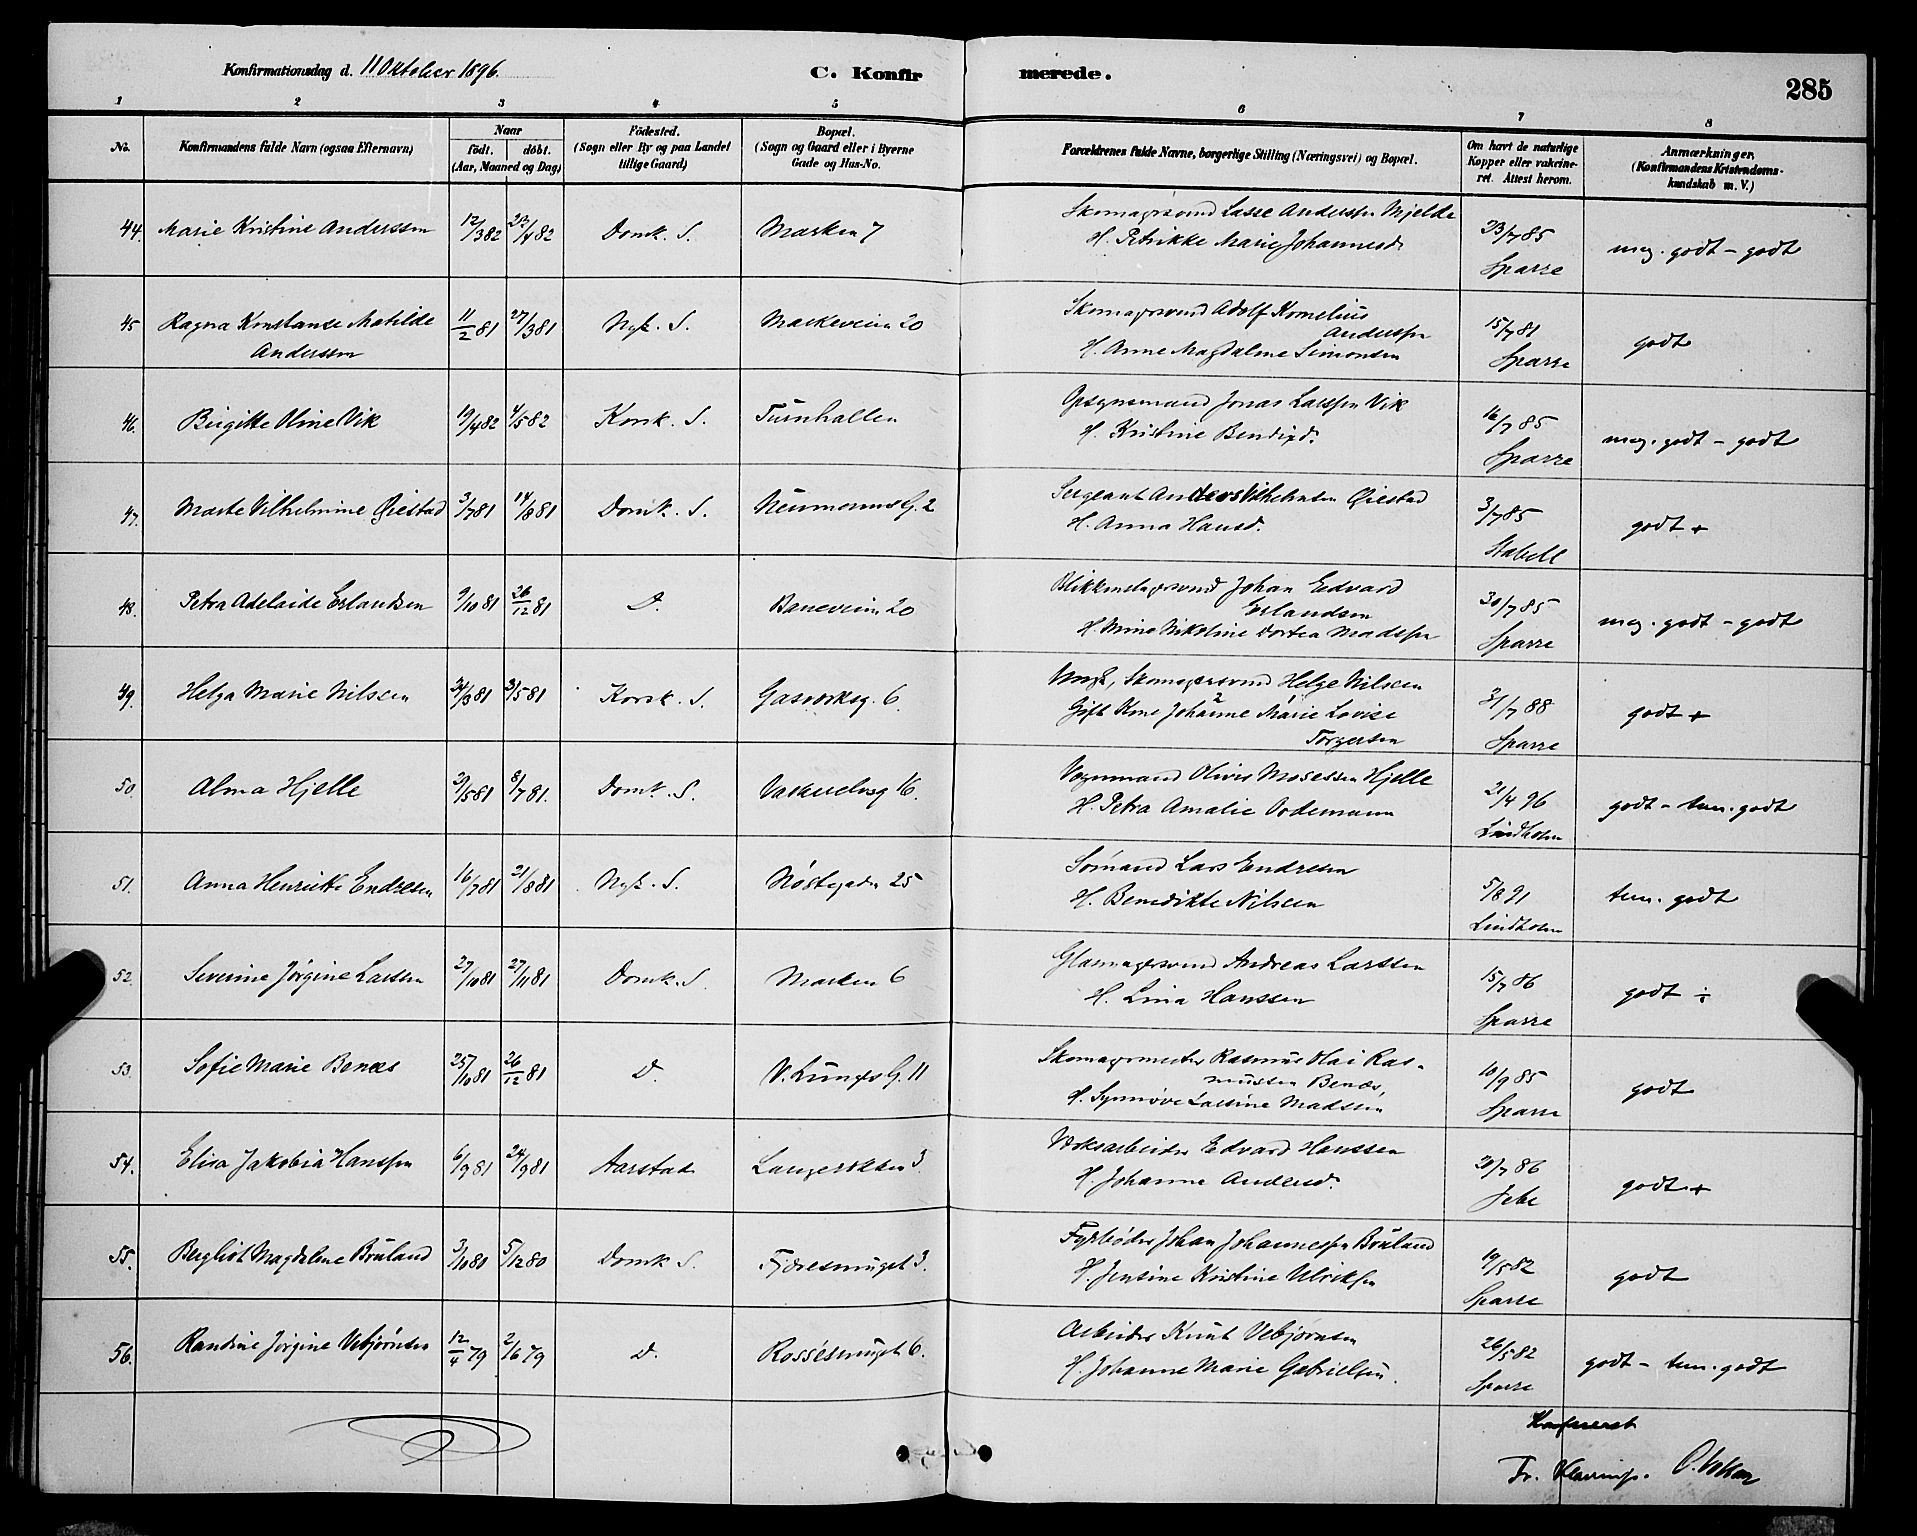 Konfirmationsdag d. 11 Oktober 1896.
C. Konfirmerede.
285
1 2 3 4 5 6 7 8
No.
Konfirmandens fulde Navn (ogsaa Efternavn)
Naar
født. døbt.
(Aar, Maaned og Dag)
Fødested.
(Sogn eller By og paa Landet
tillige Gaard)
Bopæl.
(Sogn og Gaard eller i Byerne
Gade og Hus-No.
Forældrenes fulde Navne, borgerlige Stilling (Næringsvei) og Bopæl.
Om havt de naturlige
Kopper eller vakcine-
ret. Attest herom.
Anmærkninger.
(Konfirmandens Kristendoms-
kundskab m. V.)
44. Marie Kristine Anderssen 12/3 82 23/4 82 Domk. S. Marken 7
Skomagersvend Lasse Anderssen Mjelde
H. Petrikke Marie Johannesd.
23/7 85
Sparre
meg. godt - godt
45 Ragna Konstanse Matilde
Anderssen
11/2 81 27/3 81 Nyk. S. Markeveien 20
Skomagersvend Adolf Kornelius
Anderssen
H. Anne Magdalene Simonsen
15/7 81
Sparre
godt
46. Birgitte Oline Vik 19/4 82 4/5 82 Korsk. S. Turnhallen
Opsynsmand Jonas Larssen Vik
H. Kristine Bendixd.
16/7 85
Sparre
meg. godt - godt
47. Marte Vilhelmine Øiestad 3/7 81 14/8 81 Domk. S. Neumanns G. 2
Sergeant Anders Vilhelmsen Øiestad
H. Anna Hansd.
3/7 85
Stabell
godt +
48. Petra Adelaide Erlandsen 9/10 81 26/12 81 D. Baneveien 20
Blikkenslagersvend Johan Edvard
Erlandsen
H. Nikoline Dortea Madssen
30/7 85
Sparre
meg. godt - godt
49. Helga Marie Nilssen 24/3 81 3/5 81 Korsk. S. Gasverksg. 6.
Ungk, Skomagersvend Helge Nilssen
Gift Kone Johanne Marie Lovise
Torgersen
31/7 88
Sparre
godt +
50. Alma Hjelle 3/5 81 8/7 81. Domk. S. Vaskerelvsg 16.
Vognmand Oliver Mosessen Hjelle
H. Petra Amalie Bodemann
21/4 96
Lindholm
godt - tem. godt
51. Anna Henrikke Endresen 16/7 81 21/8 81 Nyk. S. Nøstegaden 25
Sømand Lars Endresen
H. Benedikte Nilsen
5/8 91
Lindholm
tem. godt
52. Severine Jørgine Larsen 27/10 81 27/11 81 Domk. S. Marken 6
Glasmagersvend Andreas Larssen
H. Lina Hanssen
15/7 86
Sparre
godt ÷
53. Sofie Marie Benæs 25/10 81 26/12 81 D. V. Lungs G. 11
Skomagermester Rasmus Hai Ras-
mussen Benæs,
H. Synnøve Larsine Madsen
10/9 85
Sparre
godt
54. Elisa Jakobia Hanssen 6/9 81 24/9 81 Aarstad 3.
Verksarbeider Edvard Hanssen
H. Johanne Andersd.
20/7 86
Jebe
godt +
55. Bergliot Magdalene Bruland 3/10 80 5/12 80 Domk S. Fjæresmuget 3.
Fyrbøder Johan Johannessen Bruland
H. Jensine Kristine Ulriksen
19/5 82
Sparre
godt
56. Randine Jørgine Vebjørnsen 12/4 79 2/6 79 D. Rossesmuget 6.
Arbeider Knut Vebjørnsen
H Johanne Marie Gabrielsen.
26/5 82
Sparre
godt - tem. godt
Konfereret